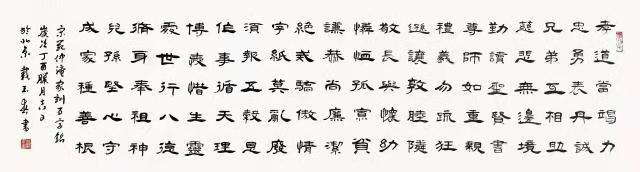 孝道當竭力
忠勇表丹誠
兄弟互相助
慈悲無邊境
勤讀聖賢書
尊師如重親
禮義勿疏狂
遜讓敦睦隣
敬長與懷幼
憐恤孤寡貧
謙恭尚廉潔
絕戒驕傲情
字紙莫亂廢
須報五穀恩
作事循天理
博愛惜生靈
處世行八德
脩身奉祖神
兒孫堅心守
成家種善根
范仲淹家訓百字銘
歲次丁酉臘月
於北京 書